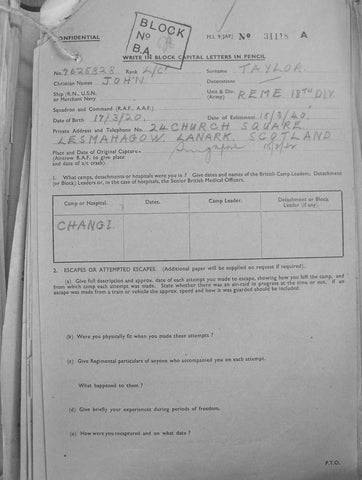 CONFIDENTIAL
BLOCK
No
B.A
M.I. 9/JAP/ No 34118 A
WRITE IN BLOCK CAPITAL LETTERS IN PENCIL
No. 7625828 Rank L/C Surname TAYLOR.
Christian Names JOHN Decorations
Ship (R.N., U.S.N. or Merchant Navy Unit & Div. (Army) REME 18TH DIV.
Squadron and Command (R.A.F., A.A.F.)
Date of Birth 17/3/20. Date of Enlistment 15/8/40.
Private Address and Telephone No. 24 CHURCH SQUARE
LESMAHAGOW. LANARK. SCOTLAND
Place and Date of Original Capture Singapore 15/2/42
(Aircrew R.A.F. to give place
and date of a/c crash).
1. What camps, detachments or hospitals were you in? Give dates and names of the British Camp Leaders, Detachment
(or Block) Leaders or, in the case of hospitals, the Senior British Medical Officers.
Camp or Hospital. Dates. Camp Leader. Detachment or Block Leader (if any)
CHANGI.
2. ESCAPES OR ATTEMPTED ESCAPES. (Additional paper will be supplied on request if required).
(a) Give full description and approx. date of each attempt you made to escape, showing how you left the camp, and
from which camp each attempt was made. State whether there was an air-raid in progress at the time or not. If an
escape was made from a train or vehicle the approx. speed and how it was guarded should be included.
(b) Were you physically fit when you made these attempts ?
(c) Give Regimental particulars of anyone who accompanied you on each attempt.
What happened to them ?
(d) Give briefly your experiences during periods of freedom.
(e) How were you recaptured and on what date ?
P.T.O.